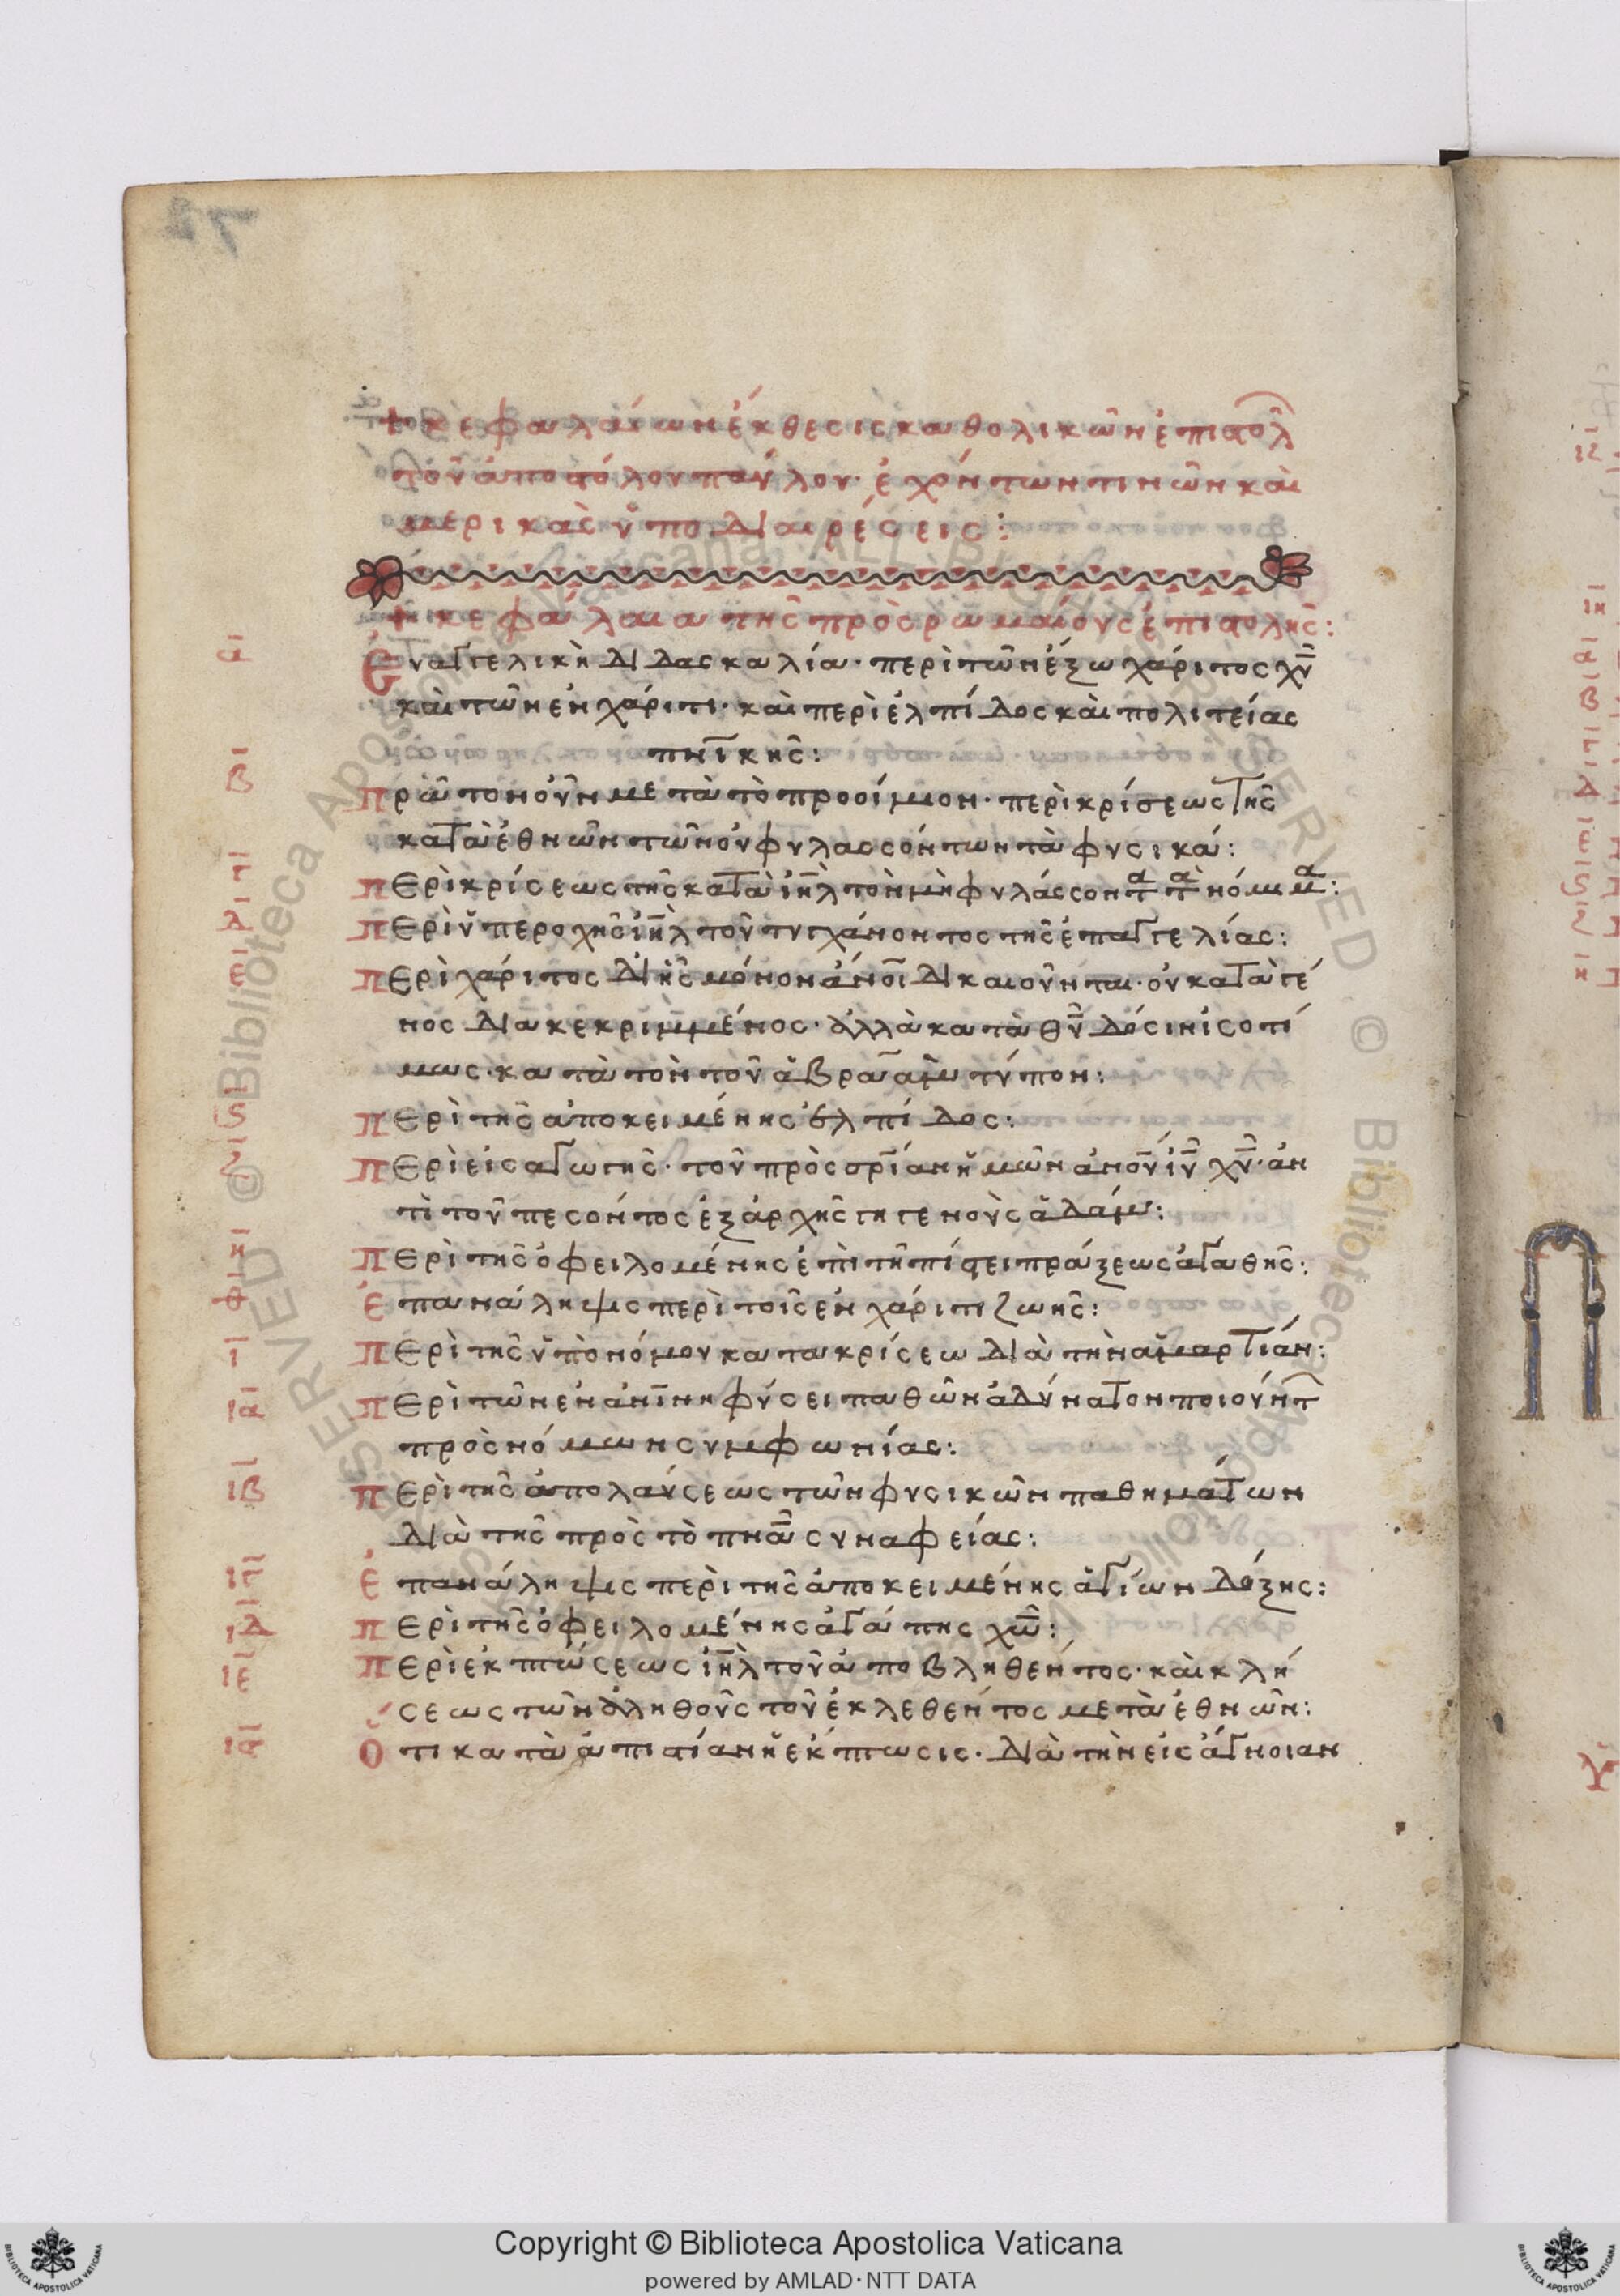 + κεφαλαίων ἔκθεσις καθολικῶν ἐπιστολ
τοῦ ἀποστόλου παύλου· ἐχόντων τινῶν καὶ
μερικὰς ὑποδιαιρέσεις:
+ κεφάλαια τῆς πρὸς ρωμαίους ἐπιστολῆς:
α Εὐαγγελικὴ διδασκαλία· περὶ τῶν ἔξω χάριτος χῦ
καὶ τῶν ἐν χάριτι· καὶ περὶ ἐλπίδος καὶ πολιτείας
πνϊκῆς:
β Πρῶτον οὖν μετὰ τὸ προοίμιον· περὶ κρίσεως τῆς
κατὰ ἐθνῶν τῶν οὐ φυλασσόντων τὰ φυσικά:
γ Περὶ κρίσεως τῆς κατὰ ἰηλ τὸν μὴ φυλάσσοντα τὰ νόμιμα:
δ Περὶ ὑπεροχῆς ἰηλ τοῦ τυγχάνοντος τῆς ἐπαγγελίας:
ε Περὶ χάριτος δι' ἧς μόνον ἄνοι δικαιοῦνται· οὐ κατὰ γέ
νος διακεκριμμένος· ἀλλὰ κατὰ θῦ δόσιν ἰσοτί
μως· κατὰ τὸν τοῦ ἀβραὰμ τύπον:
ς Περὶ τῆς ἀποκειμένης ἐλπίδος:
ζ Περὶ εἰσαγωγῆς· τοῦ πρὸς σρίαν ἡμῶν ἀνοῦ ἰῦ χῦ· ἀν
τὶ τοῦ πεσόντος ἐξ ἀρχῆς γηγενοὺς ἀδάμ:
η Περὶ τῆς ὀφειλομένης ἐπὶ τῇ πίστει πράξεως ἀγαθῆς:
θ Ἐπανάληψις περὶ τοῖς ἐν χάριτι ζωῆς:
ι Περὶ τῆς ὑπὸ νόμου κατακρίσεω διὰ τὴν ἁμαρτίαν:
ια Περὶ τῶν ἐν ἀνίνη φύσει παθῶν ἀδύνατον ποιούντ
πρὸς νόμων συμφωνίας:
ιβ Περὶ τῆς ἀπολαύσεως τῶν φυσικῶν παθημάτων
διὰ τῆς πρὸς τὸ πνᾶ συναφείας:
ιγ Ἐπανάληψις περὶ τῆς ἀποκειμένης ἁγίων δόξης:
ιδ Περὶ τῆς ὀφειλομένης ἀγάπης χῶ:
ιε Περὶ ἐκπτώσεως ἰηλ τοῦ ἀποβληθέντος· καὶ κλή
σεως τῶν ἀληθοῦς τοῦ ἐκλεθέντος μετὰ ἐθνῶν:
ια Ὅτι κατὰ ἀπιστίαν ἡ ἔκπτωσις· διὰ τὴν εἰς ἄγνοιαν
Copyright © Biblioteca Apostolica Vaticana
powered by AMLAD·NTT DATA